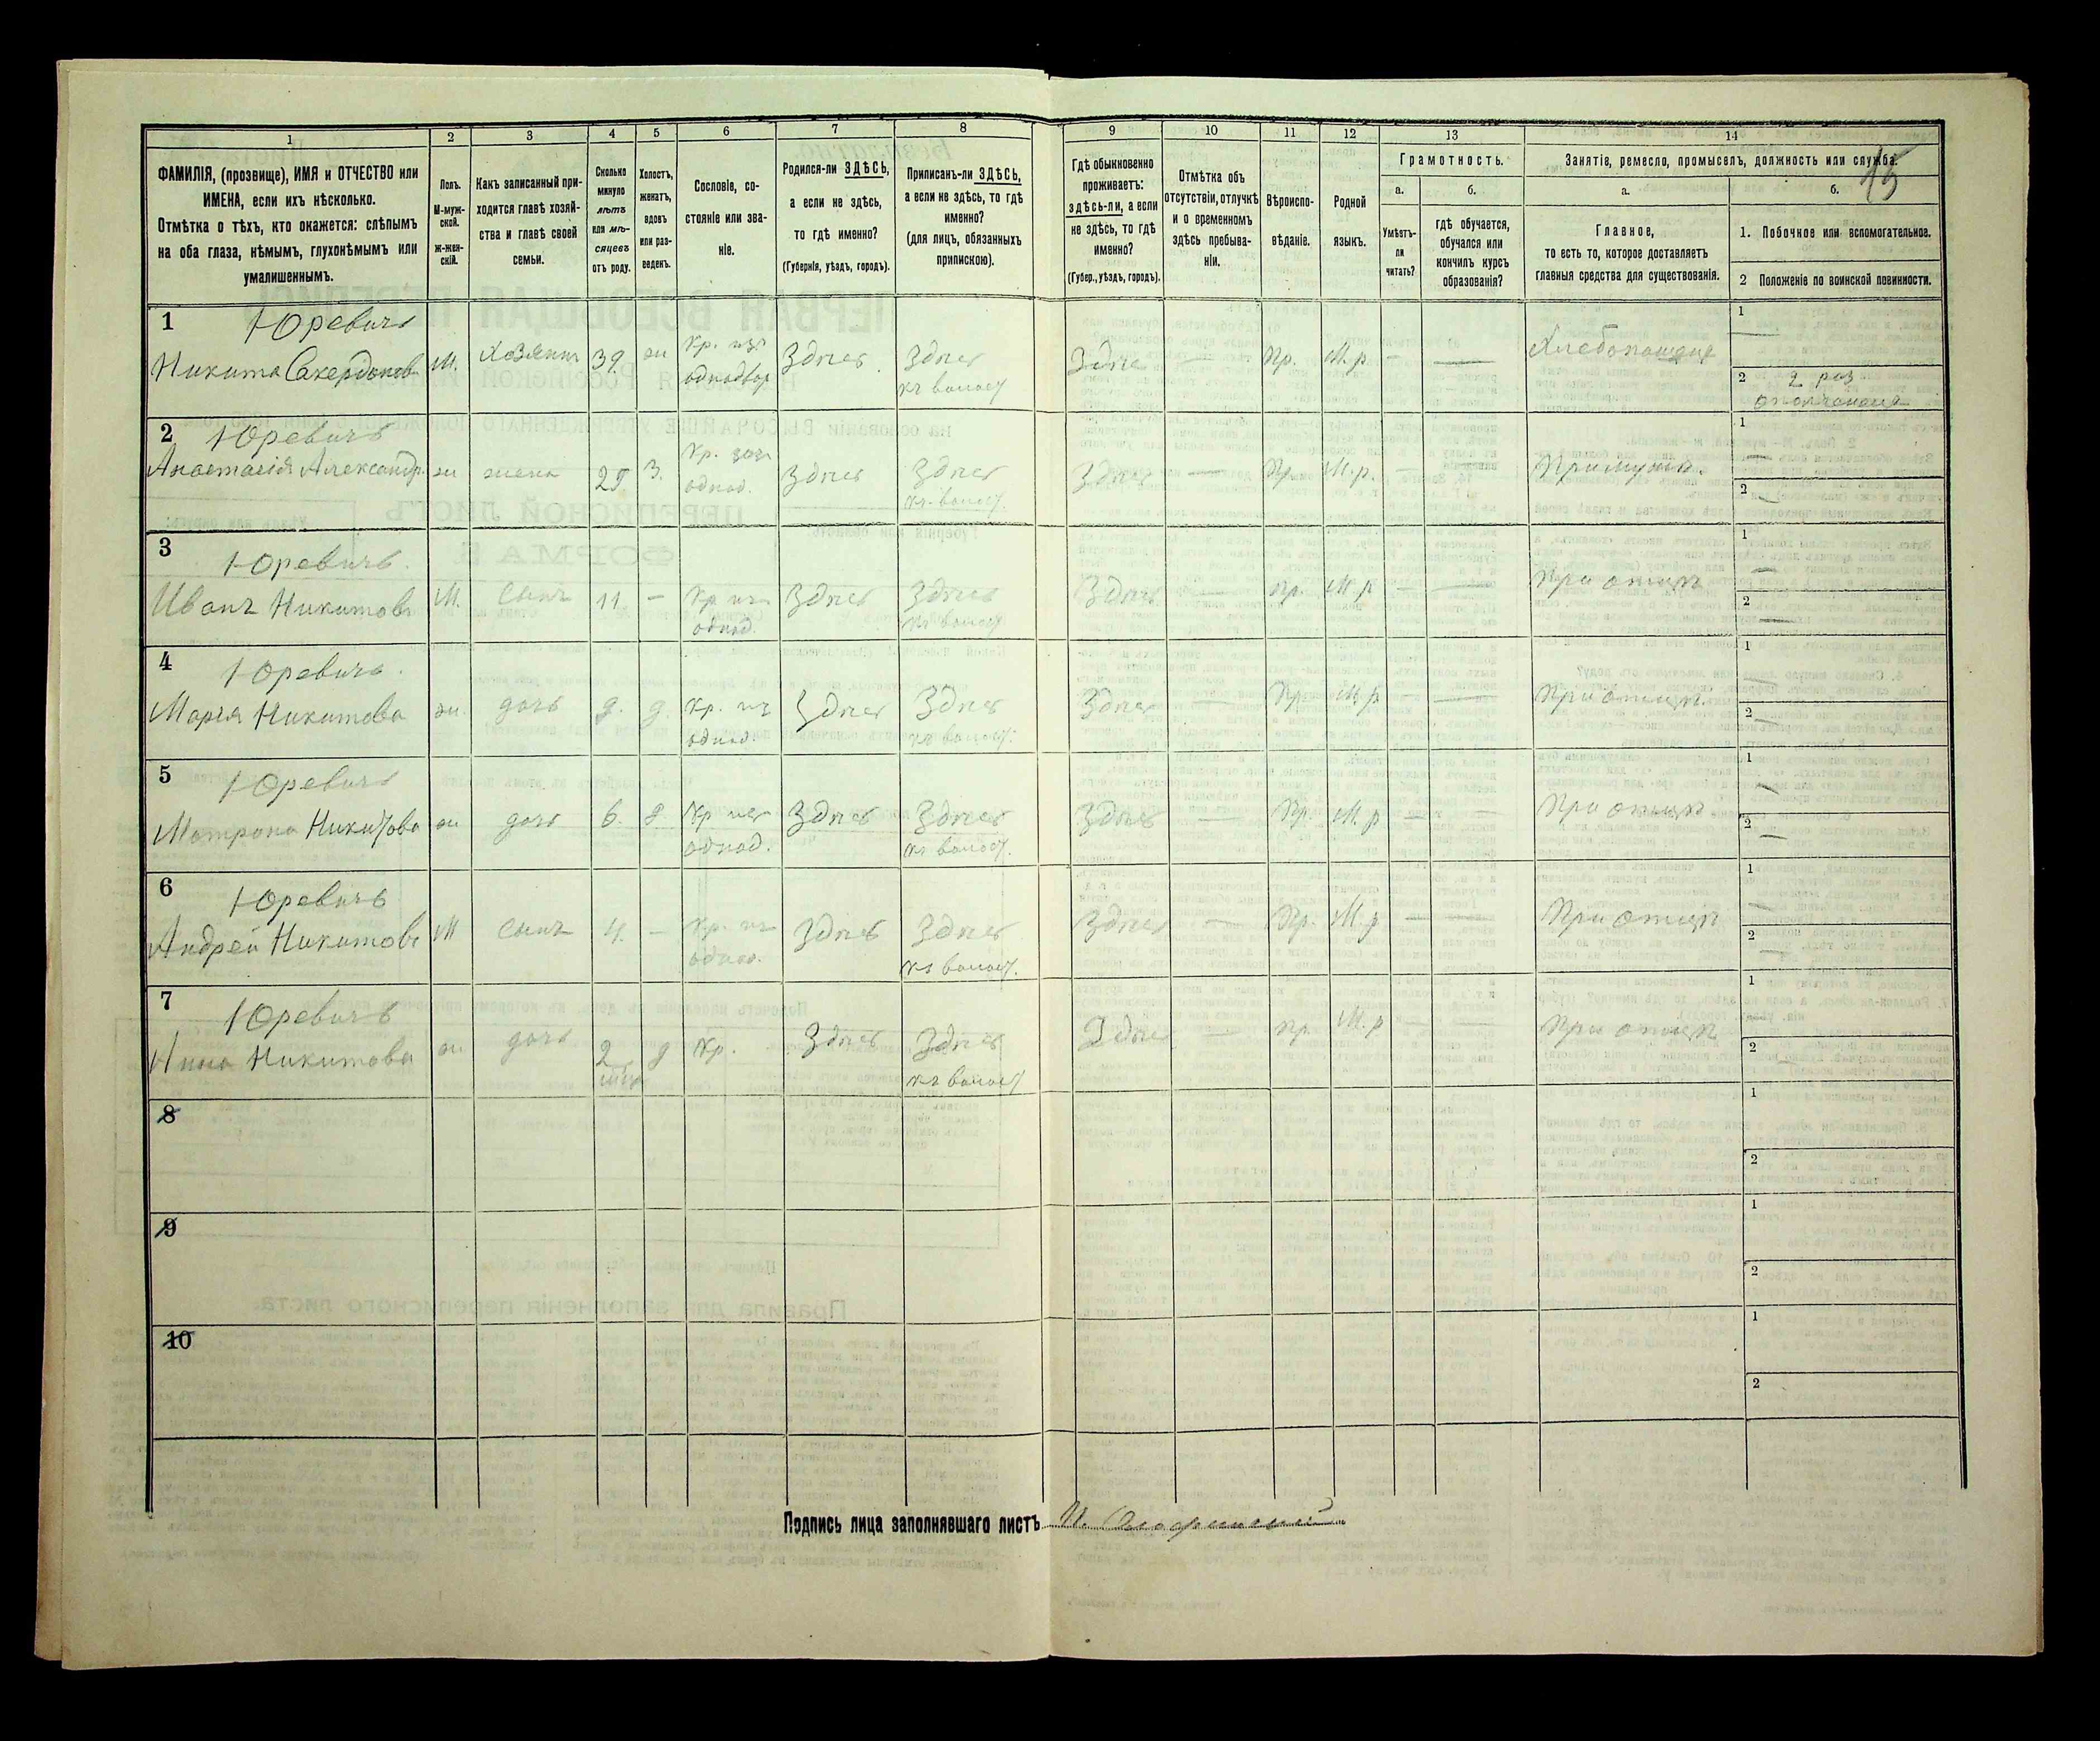 1 2 3 4 5 6 7 8 9 10 11 12 13 14
ФАМИЛІЯ, (прозвище), ИМЯ и ОТЧЕСТВО или
ИМЕНА, если ихъ нѣсколько.
Отмѣтка о тѣхъ, кто окажется: слѣпымъ
на оба глаза, нѣмымъ, глухонѣмымъ или
умалишеннымъ.
Полъ.
М-муж-
ской.
ж-жен-
скій.
Какъ записанный при-
ходится главѣ хозяй-
ства и главѣ своей
семьи.
Сколько
минуло
лѣтъ
или мѣ-
сяцевъ
отъ роду.
Холостъ,
женатъ,
вдовъ
или раз-
веденъ.
Сословіе, со-
стояніе или зва-
ніе.
Родился-ли ЗДѢСЬ,
а если не здѣсь,
то гдѣ именно?
(Губернія, уѣздъ, городъ).
Приписанъ-ли ЗДѢСЬ,
а если не здѣсь, то гдѣ
именно?
(для лицъ, обязанныхъ
припискою).
Гдѣ обыкновенно
проживаетъ:
здѣсь-ли, а если
не здѣсь, то гдѣ
именно?
(Губер., уѣздъ, городъ).
Отмѣтка объ
отсутствіи, отлучкѣ
и о временномъ
здѣсь пребыва-
ніи.
Вѣроиспо-
вѣданіе.
Родной
языкъ.
Грамотность.
а.
Умѣетъ-
ли
читать?
б.
гдѣ обучается,
обучался или
кончилъ курсъ
образованія?
Занятіе, ремесло, промыселъ, должность или служба.
15
а.
Главное,
то есть то, которое доставляетъ
главныя средства для существованія.
б.
1. Побочное или вспомогательное.
2 Положеніе по воинской повинности.
1 Юревичъ
Никита М. Хозяинъ 39 ж Кр. изъ однодвор Здѣсь Здѣсь Здѣсь — Пр. М. р. — —
1 —
2 2 раз
2 Юревичъ
Анастасія Александр. ж жена 29 З. Кр. однод. Здѣсь Здѣсь Здѣсь — Пр. М. р. — При мужѣ.
1 —
2 —
3 Юревичъ.
Иванъ Никитовъ М. сынъ 11 — Кр изъ однод. Здѣсь Здѣсь Здѣсь — пр. М. р — — При отцѣ
1 —
2 —
4 Юревичъ.
Марія Никитова ж. дочь 9. д. Кр. изъ однод. Здѣсь Здѣсь Здѣсь — Пр. М. р — — При отцѣ.
1 —
2 —
5 Юревичъ
Матрона Никитова ж дочь 6. д Кр изъ однод. Здѣсь Здѣсь Здѣсь — Пр. М. р — — При отцѣ
1 —
2 —
6 Юревичъ
Андрей Никитовъ М сынъ 4. — Кр. изъ однод. Здѣсь Здѣсь Здѣсь — Пр. М. р — — При отцѣ
1 —
2 —
7 Юревичъ
Анна Никитова ж. дочь 2 д Кр. Здѣсь Здѣсь Здѣсь — пр. М. р — — При отцѣ
1 —
2 —
8
1
2
9
1
2
10
1
2
Подпись лица заполнявшаго листъ